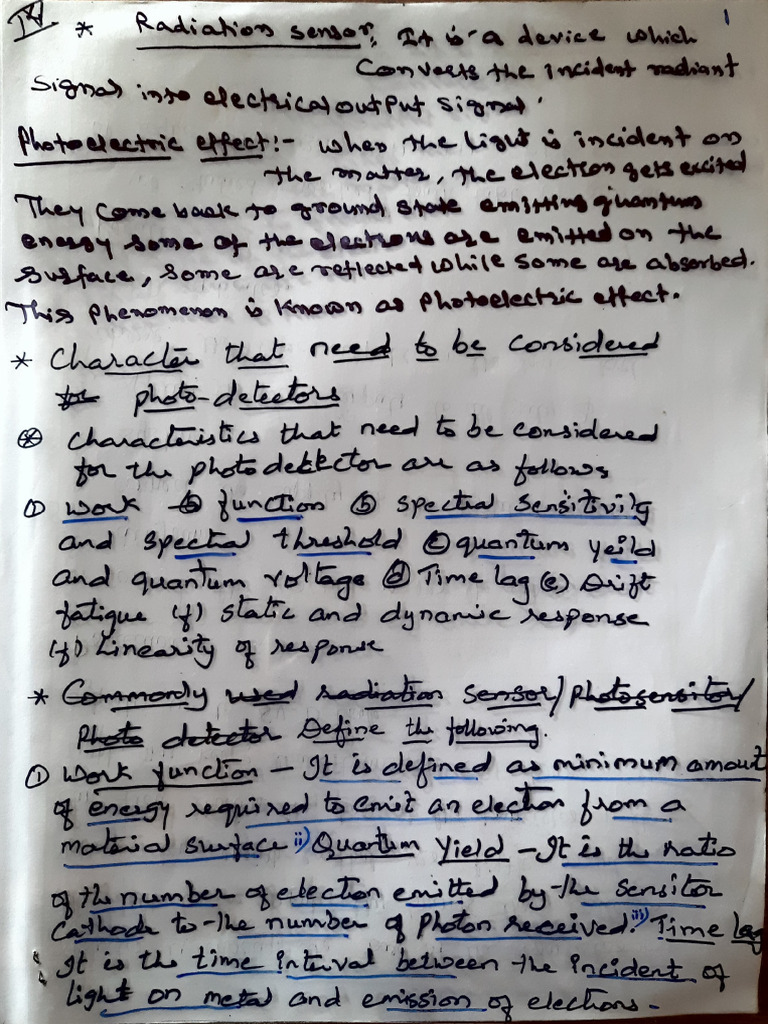 IV * Radiation sensor: It is a device which 1
Converts the incident radiant
Signal into electrical output signal.
Photoelectric effect:- When the light is incident on
the matter, the electron gets excited
They come back to ground state emitting quantum
energy some of the electrons are emitted on the
surface, some are reflected while some are absorbed.
This phenomenon is known as photoelectric effect.
* Character that need to be considered
for photo-detectors
* Characteristics that need to be considered
for the photodetector are as follows
① Work function ⓑ Spectral Sensitivity
and spectral threshold ⓒ quantum yeild
and quantum voltage ⓓ Time lag (e) Drift
fatigue (f) static and dynamic response
(f) Linearity of response
* Commonly used radiation sensor/photosensitor/
Photo detector Define the following.
① Work function – It is defined as minimum amount
of energy required to emit an election from a
material surface ii) Quantum Yield – It is the ratio
of the number of election emitted by the sensitor
cathode to the number of photon received. iii) Time lag
It is the time interval between the incident of
light on metal and emission of elections.